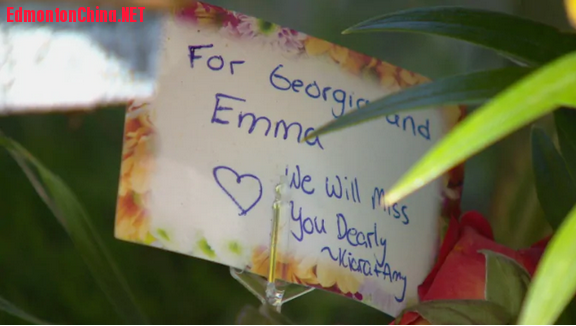 EdmontonChina.NET
For Georgia and
Emma
We Will Miss
You Dearly
~Kiara + Amy